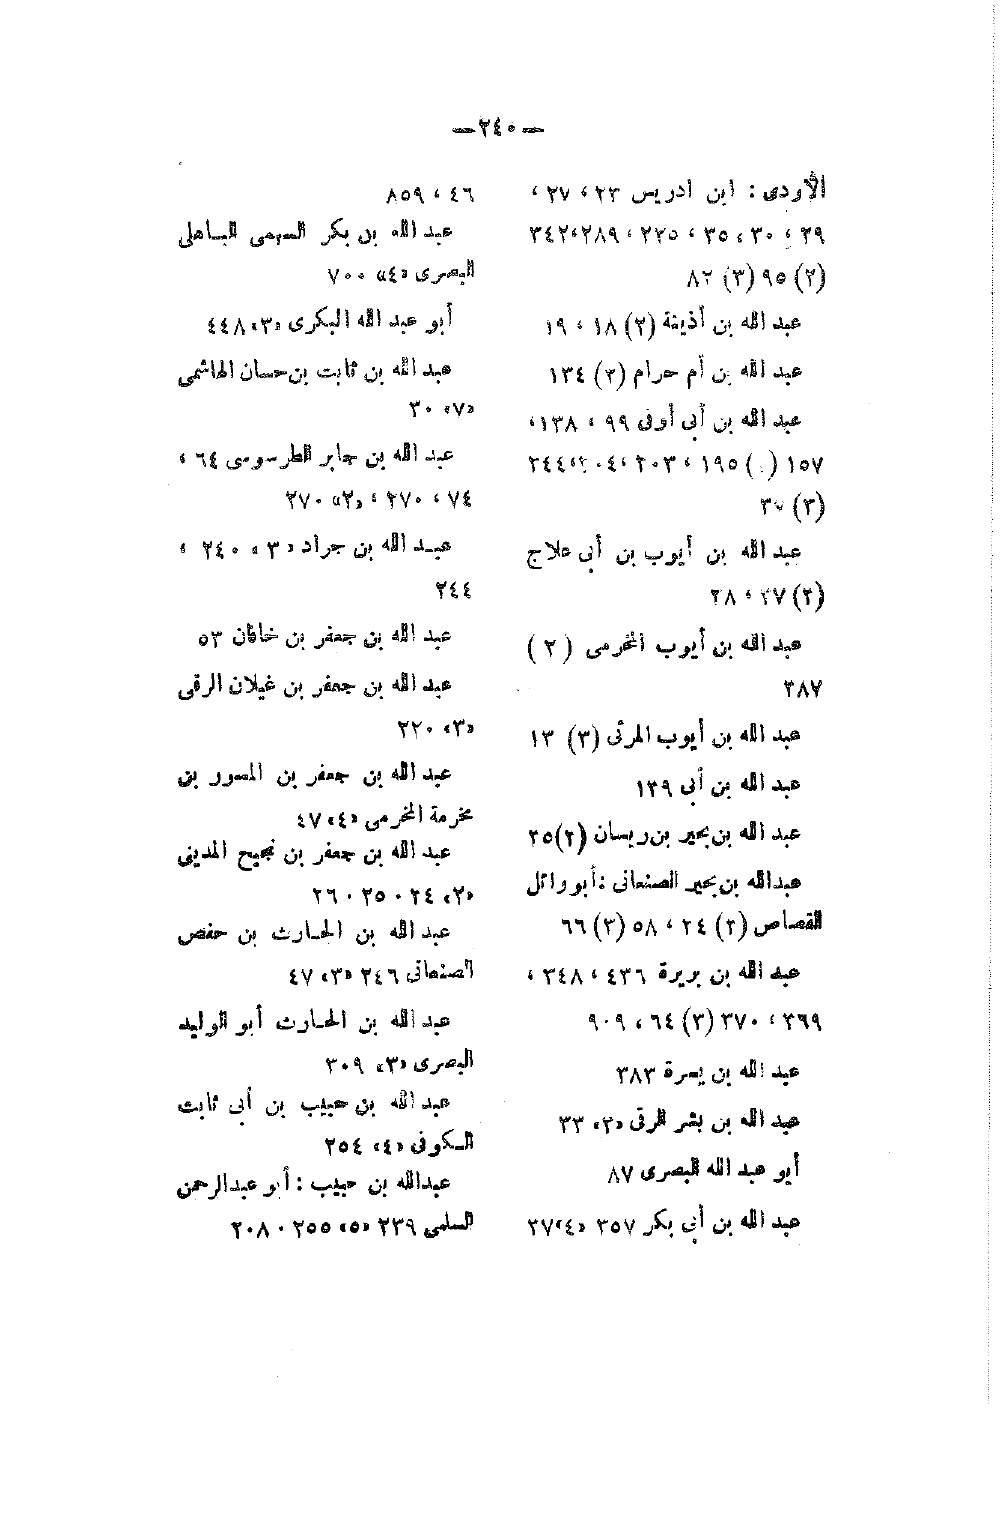 —٢٤٠—
الأودى : ابن ادريس ٢٣ ، ٢٧ ،
٢٩ ، ٣٠ ، ٣٥ ، ٢٣٥ ، ٢٨٩،٣٤٢
(٢) ٩٥ (٣) ٨٢
عبد الله بن أذينة (٢) ١٨ ، ١٩
عبد الله بن أم حرام (٢) ١٣٤
عبد الله بن أبى أوفى ٩٩ ، ١٣٨،
١٥٧ ( ) ١٩٥ ، ٢٠٣، ٢٠٤،٢٤٤
(٣) ٣٧
عبد الله بن أيوب بن أبى علاج
(٢) ٢٧ ، ٢٨
عبد الله بن أيوب المخرمى (٢)
٣٨٧
عبد الله بن أيوب المرئى (٣) ١٣
عبد الله بن أبى ١٣٩
عبد الله بن بحير بن ريسان (٢) ٢٥
عبدالله بن بحير الصنعانى : أبو وائل
القصاص (٢) ٢٤ ، ٥٨ (٣) ٦٦
عبد الله بن بريرة ٤٣٦ ، ٣٤٨ ،
٣٦٩ ، ٣٧٠ (٣) ٦٤ ، ٩٠٩
عبد الله بن يسرة ٣٨٣
عبد الله بن بشر الرقى «٢» ٣٣
أبو عبد الله البصرى ٨٧
عبد الله بن أبى بكر ٣٥٧ «٤» ٢٧
٤٦ ، ٨٥٩
عبد الله بن بكر السهمى الباهلى
البصرى «٤» ٧٠٠
أبو عبد الله البكرى «٣» ٤٤٨
عبد الله بن ثابت بن حسان الهاشمى
«٧» ٣٠
عبد الله بن جابر الطرسوسى ٦٤ ،
٧٤ ، ٢٧٠ ، «٢» ٢٧٠
عبد الله بن جراد «٣» ٢٤٠ ،
٢٤٤
عبد الله بن جعفر بن خاقان ٥٣
عبد الله بن جعفر بن غيلان الرقى
«٣» ٢٢٠
عبد الله بن جعفر بن المسور بن
مخرمة المخرمى «٤» ٤٧
عبد الله بن جعفر بن نجيح المدينى
«٢» ٢٤ . ٢٥ . ٢٦
عبد الله بن الحارث بن حفص
الصنعانى ٢٤٦ «٣» ٤٧
عبد الله بن الحارث أبو الوليد
البصرى «٣» ٣٠٩
عبد الله بن حبيب بن أبى ثابت
الكوفى «٤» ٢٥٤
عبدالله بن حبيب : أبو عبدالرحمن
السلمى ٢٣٩ «٥» ٢٥٥ . ٢٠٨